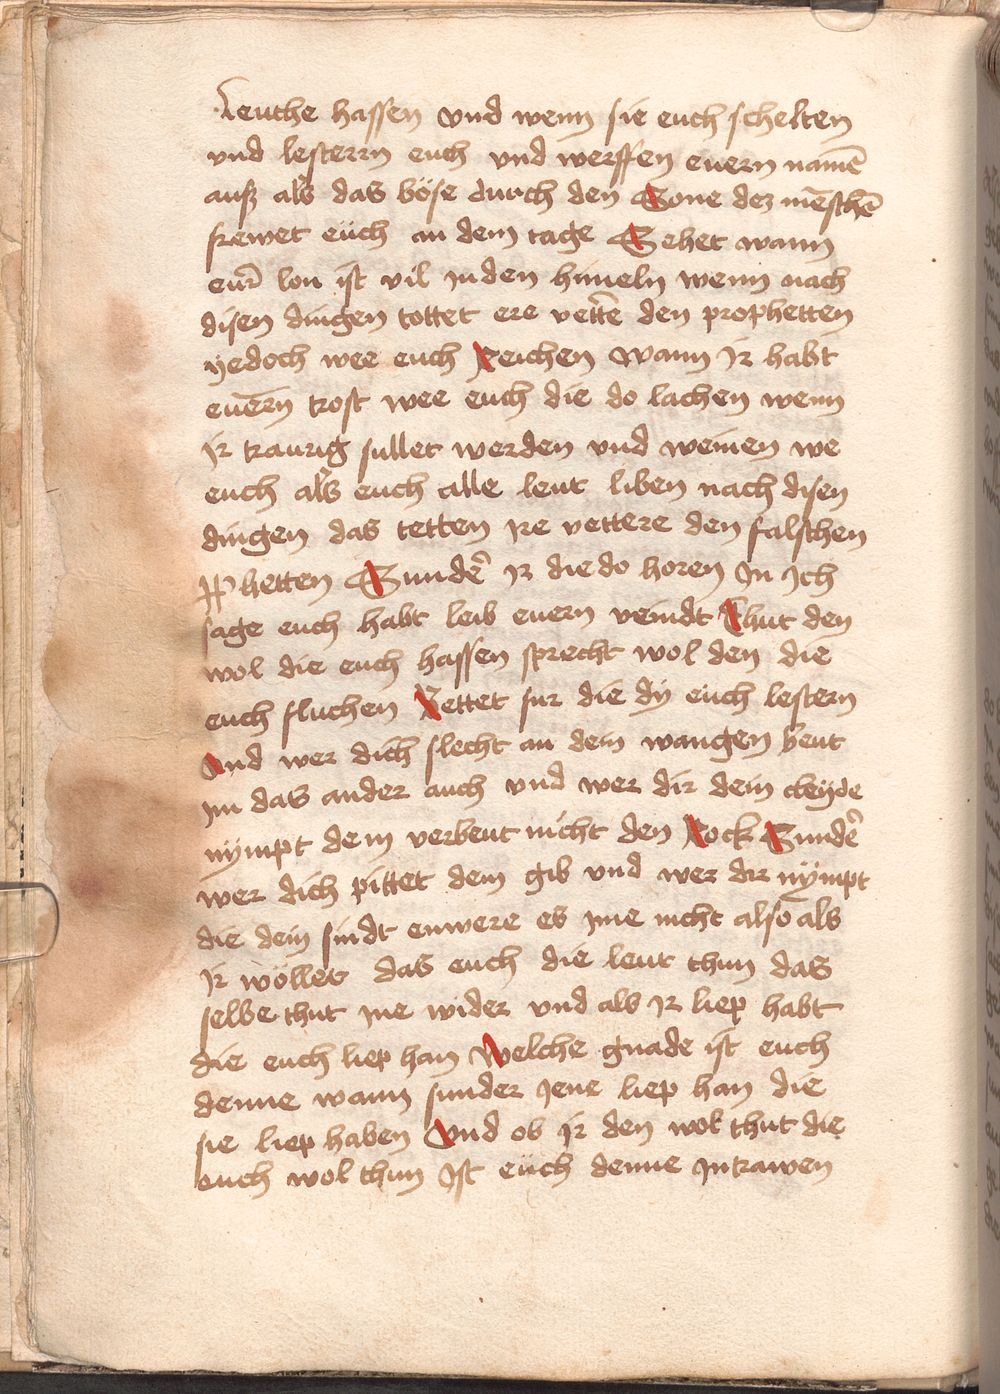 Leuthe hassen vnd wenn sie euch schelten
vnd lesterrn euch vnd werffen euern namē
auß als das böse durch den Sone dez mēschē
frewet eüch an dem tage Sehet wann
eur̄ lon ist vil in den himeln wenn nach
disen dingen tottet ere vettē den prophetten
yedoch wee euch Reichen wann Jr habt
euērn trost wee euch die do lachen wenn
Jr traurig sullet werden vnd weinen we
euch als euch alle leut liben nach disen
dingen das tetten Jre vettere den falschen
Pphetten Sundē Jr die do horen in Jch
sage euch habt leib euern veindt Thut den
wol die euch hassen sprecht wol den die
euch fluchen Pettet fur die dÿ eüch lestern
Vnd wer dich slecht an dem wangen beut
im das ander auch vnd wer dir dein cleyde
nÿmpt dem verbeut nicht den Rock Sundē
wer dich pittet dem gib vnd wer dir nÿmpt
die dein sindt enwere es ime nicht also als
Jr wöllet das euch die leut thun das
selbe thut ine wider vnd als Jr liep habt
die euch liep han Welche gnade ist euch
denne wann sunder Jene liep han die
sie liep haben Vnd ob Jr den wol thut die
euch wol thun Ist eüch denne intrawen